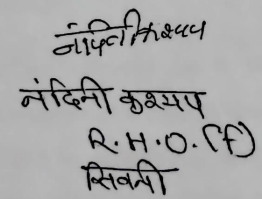 नंदिनी कश्यप
नंदिनी कश्यप
R.H.O. (F)
सिवनी